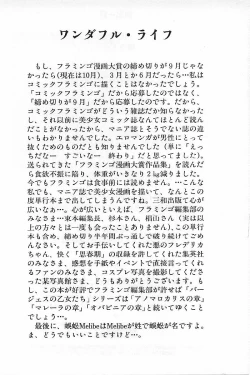 ワンダフル・ライフ
もし、フラミンゴ漫画大賞の締め切りが9月じゃな
かったら(現在は10月)、3月とか6月だったら…私は
コミックフラミンゴに描くことはなかったでしょう。
「コミックフラミンゴ」だから応募したのではなく、
「締め切りが9月」だから応募したのです。だから、
コミックフラミンゴがどういう雑誌だか知らなかった
し、それ以前に美少女コミック誌なんてほとんど読ん
だことがなかったから、マニア誌とそうでない誌の違
いもわかりませんでした。エロマンガが男性にとって
抜くためのものだとも知りませんでした(単に「えっ
ちだなー すごいなー 終わり」だと思ってました)。
送られてきた「フラミンゴ大賞受賞作品集」を読んだ
ら食欲不振に陥り、体重がいきなり2kg減りました。
今でもフラミンゴは食事前には読めません。…こんな
私でも、マニア誌で美少女漫画を描いて、なんとこの
度単行本まで出してしまうんですね。三和出版て心が
広いなぁ…。心が広いといえば、フラミンゴ編集部の
みなさま…東本編集長、杉本さん、椙山さん(実は以
上の方々とは一度も会ったことありません)、この単行
本も含め、締め切り半年間ぶっ通しで破り続けてごめ
んなさい。そしてお手伝いしてくれた墨のフレデリカ
ちゃん、快く「思春期」の収録を許してくれた英某社
のみなさま、感想を手紙やイベントで直接言ってくれ
るファンのみなさま、コスプレ写真を撮影してくださ
った某写真館さま、どうもありがとうございます。も
し、この本が好評でフラミンゴ編集部が許せば「バー
ジェスの乙女たち」シリーズは「アノマロカリスの章」
「マレーラの章」「オパビニアの章」と続いてゆくこと
でしょう…。
最後に、蜈蚣MelibeはMelibeが姓で蜈蚣が名ですよ。
ま、どうでもいいことですけど…。